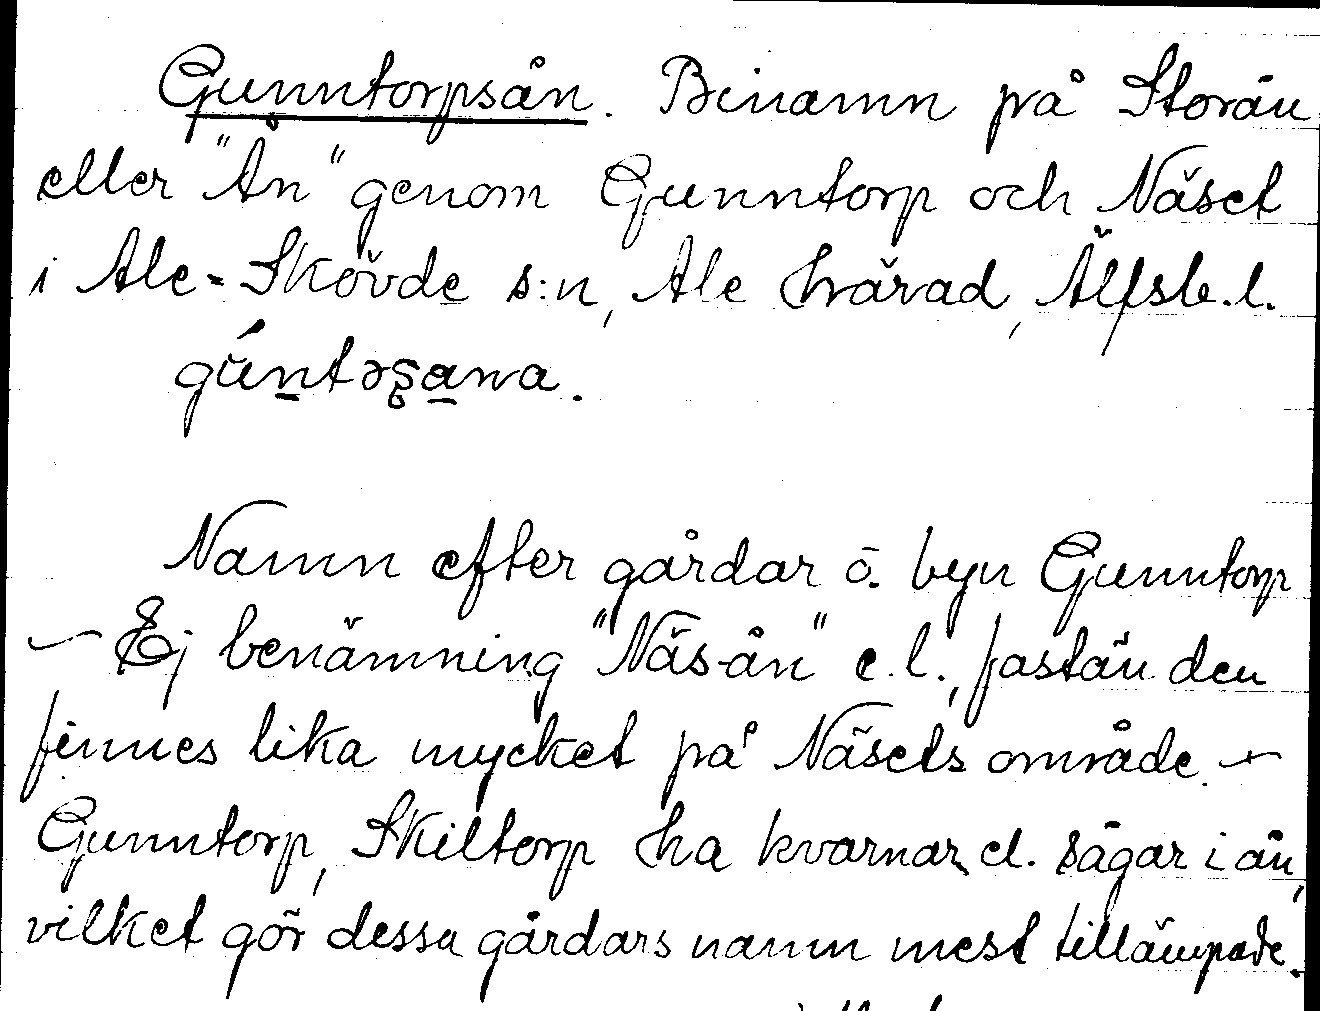 Gunntorpsån. Binamn på Storån
eller "Ån" genom Gunntorp och Näset
i Ale-Skövde s:n, Ale härad, Älfsb. l.
Namn efter gårdar o. byn Gunntorp
– Ej benämning "Näs-ån" e. l., fastän den
finnes lika mycket på Näsets område –
Gunntorp, Skiltorp ha kvarnar el. sågar i ån,
vilket gör dessa gårdars namn mest tillämpade.